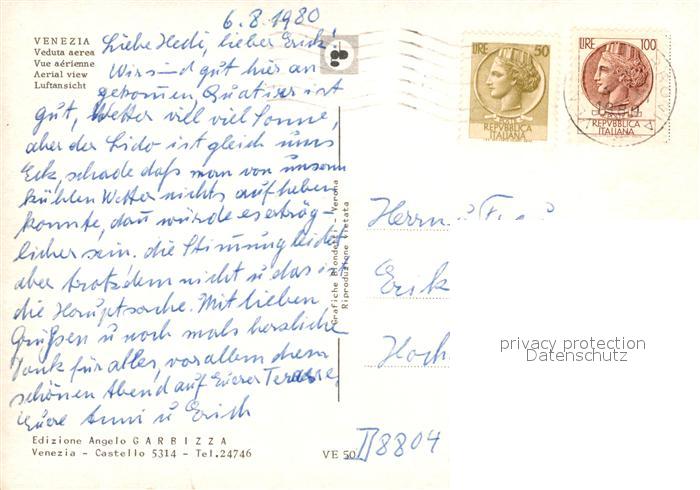 6.8.1980
VENEZIA
Veduta aerea
Vue aérienne
Aerial view
Luftansicht
Liebe Hedi, lieber Erich!
Wir sind gut hier an
gekommen, Quatier ist
gut, Wetter viel viel Sonne,
aber der Lido ist gleich ums
Eck, schade daß man von unserm
kühlen Wetter nichts aufheben
konnte, dan würde es erträg-
licher sein. die Stimmung leidet
aber trotzdem nicht u das ist
die Hauptsache. Mit lieben
Grüßen u noch mals herzliche
Dank für alles, vor allem dem
schönen Abend auf Eurer Terasse,
Eure Anni u Erich
Edizione Angelo GARBIZZA
Venezia - Castello 5314 - Tel.24746
VE 50
Grafiche Biondetti - Verona
Riproduzione vietata
LIRE 50
REPVBBLICA
ITALIANA
LIRE 100
REPVBBLICA
ITALIANA
Herrn u
Erik
Hoch
privacy protection
Datenschutz
B8804